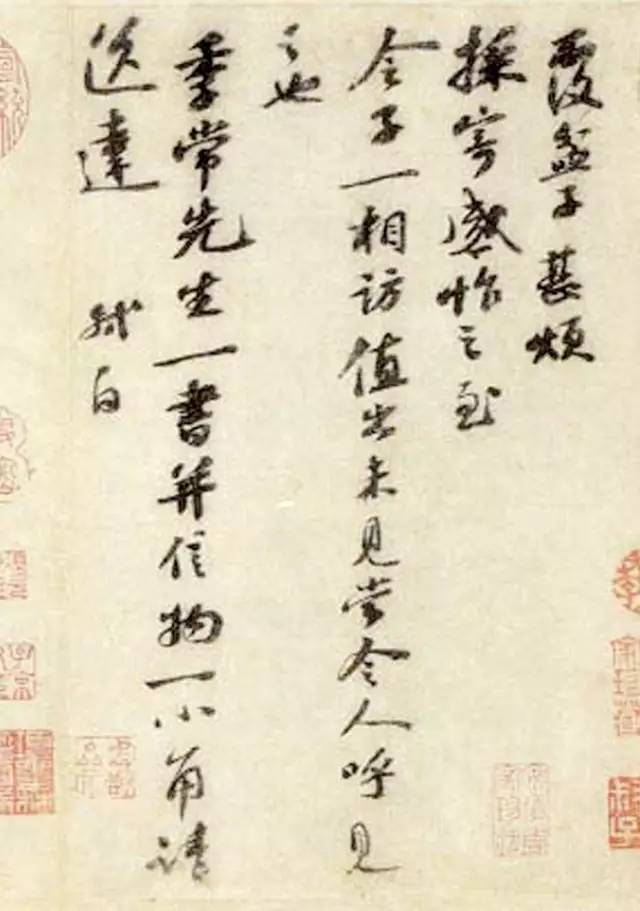 覆盆子甚煩
採寄感怍之至
令子一相訪值出未見當令人呼見
之也
季常先生一書并信物一小角請
送達　軾白